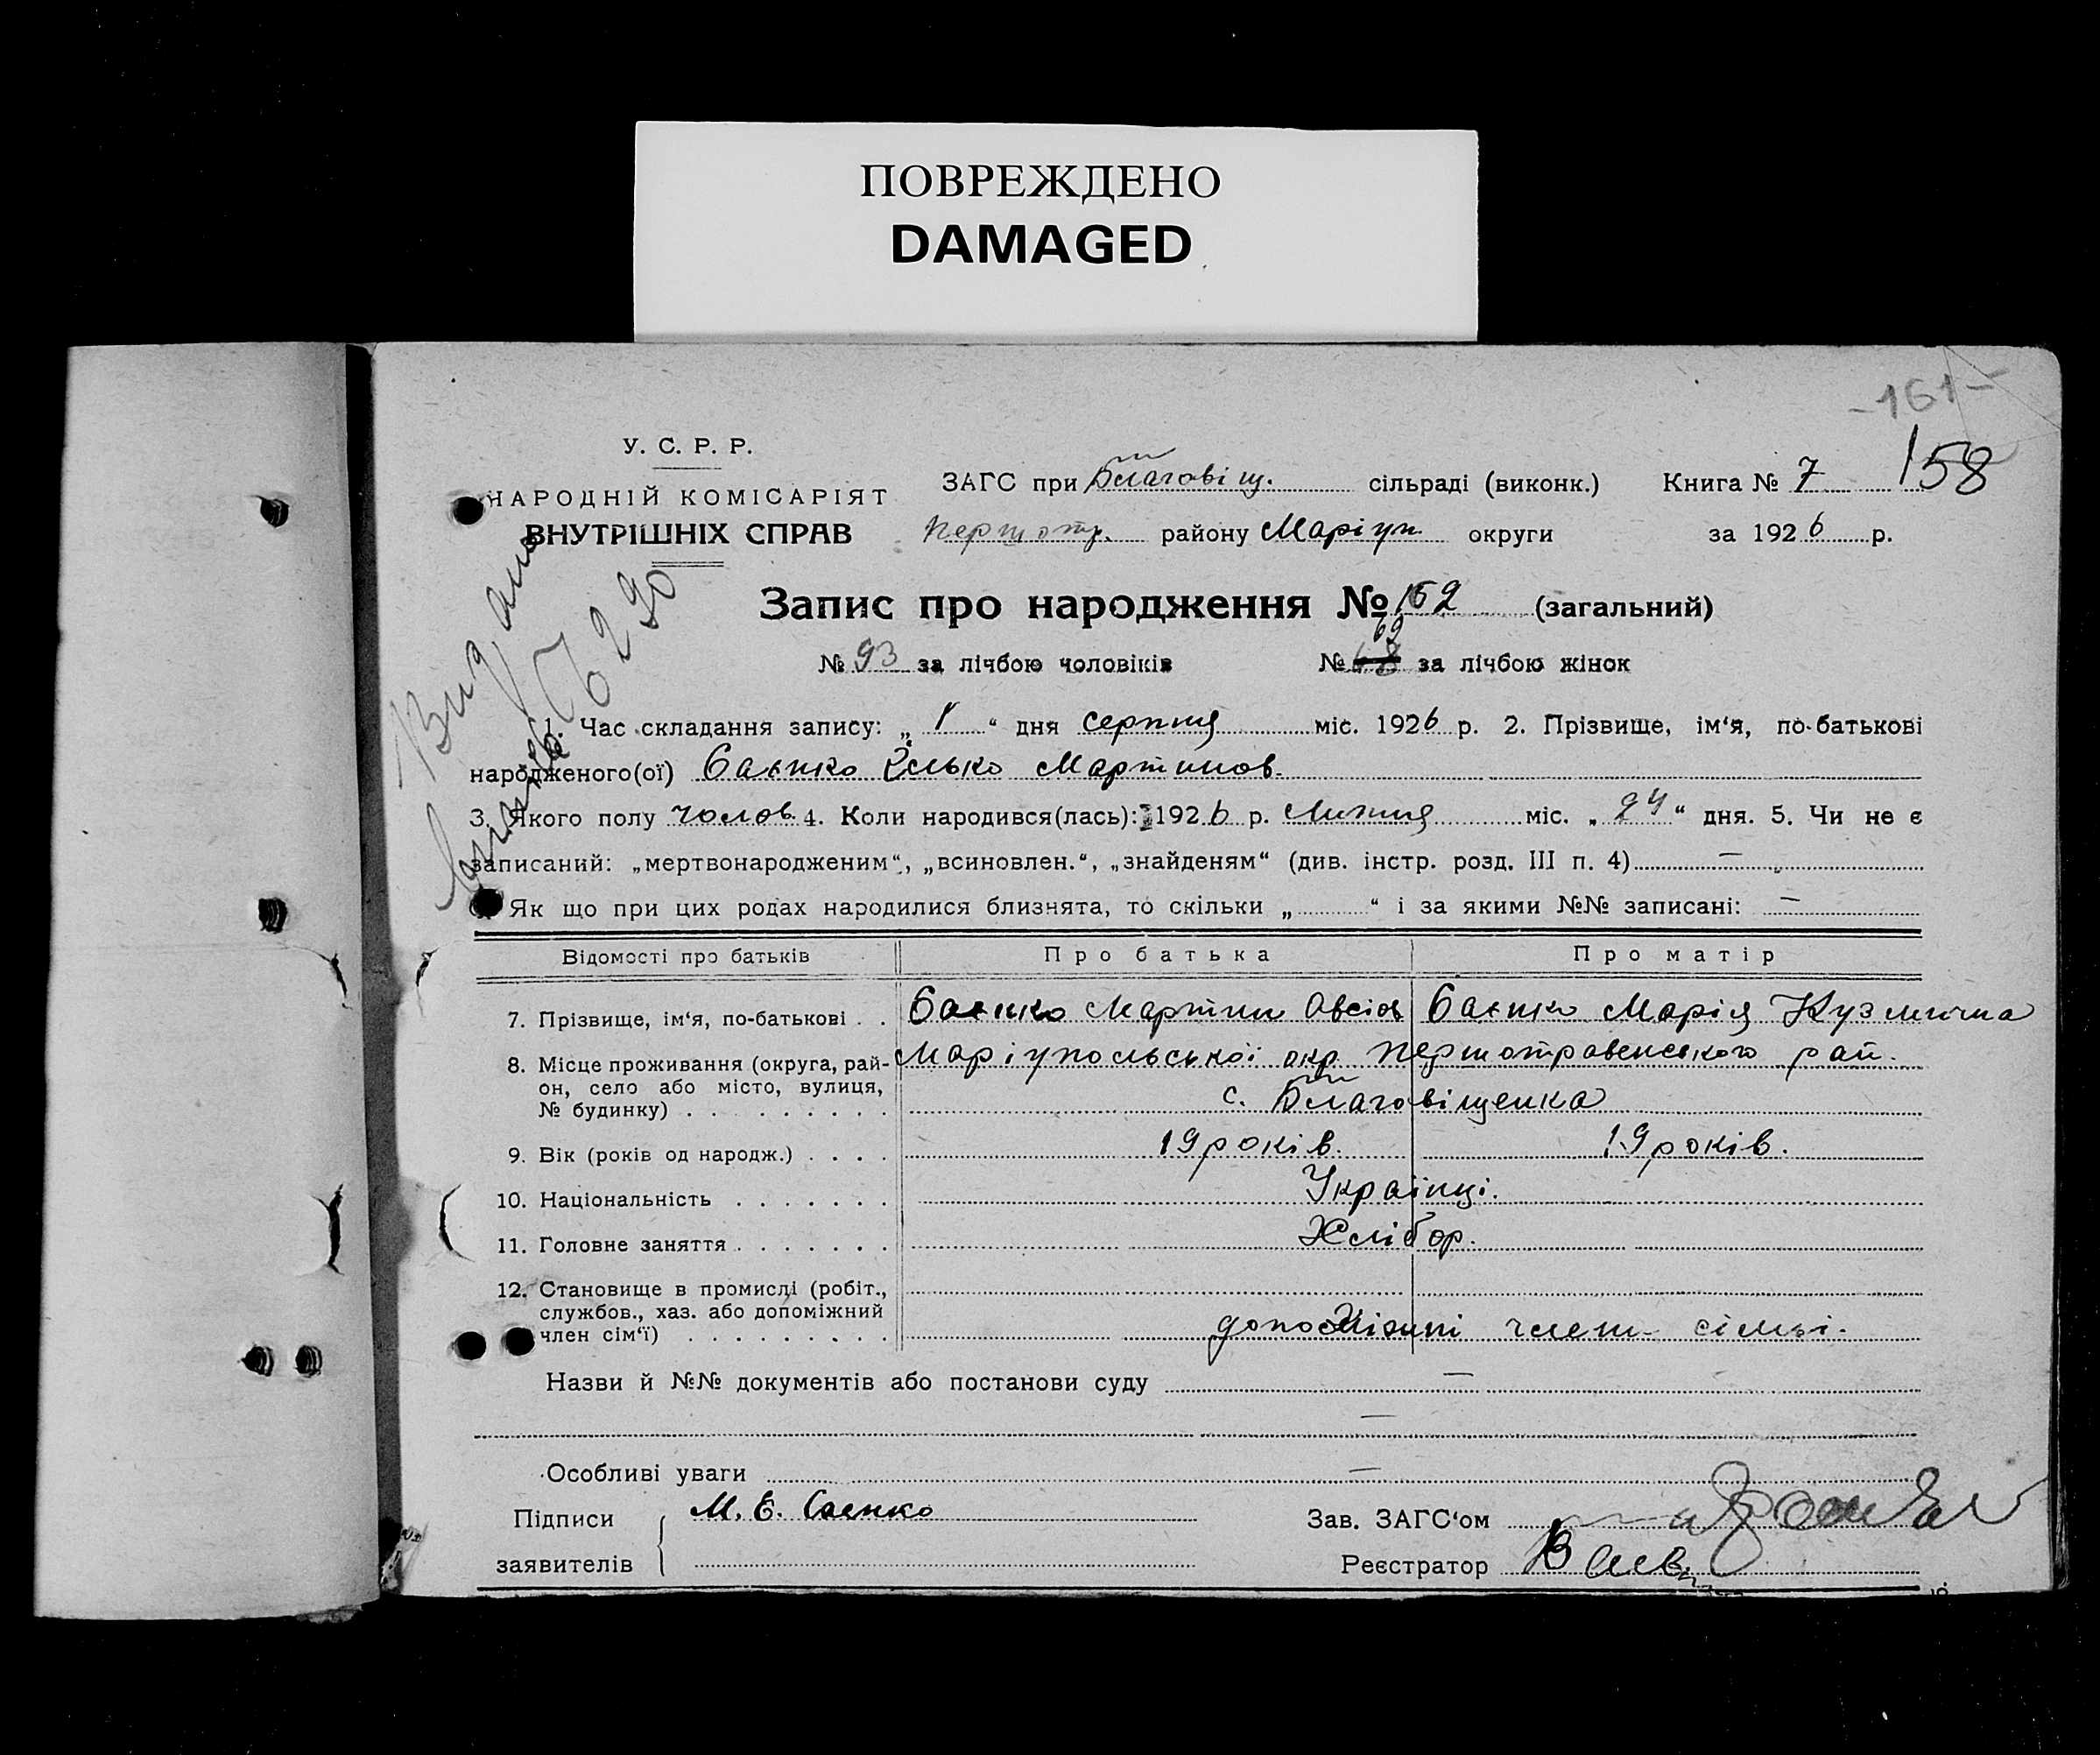 ПОВРЕЖДЕНО
DAMAGED
-161-
158
У. С. Р. Р.
НАРОДНІЙ КОМІСАРІЯТ
ВНУТРІШНІХ СПРАВ
ЗАГС при Благовіщ. сільраді (виконк.) Книга № 7
Першотр. району Маріуп округи за 1926 р.
Запис про народження № 162 (загальний)
№ 93 за лічбою чоловіків № 69 за лічбою жінок
Видано
1. Час складання запису: „ 1 “ дня серпня міс. 1926 р. 2. Прізвище, ім'я, по-батькові
народженого(ої) Саєнко Ілько Мартинов.
3. Якого полу чолов. 4. Коли народився(лась): 1926 р. Липня міс. „ 24 “ дня. 5. Чи не є
записаний: „мертвонародженим“, „всиновлен.“, „знайденям“ (див. інстр. розд. III п. 4) —
Як що при цих родах народилися близнята, то скільки „ “ і за якими №№ записані: —
Відомості про батьків Про батька Про матір
7. Прізвище, ім'я, по-батькові . . Саєнко Мартин Овсіов Саєнко Марія Кузмична
8. Місце проживання (округа, рай- Маріупольської окр. Першотравенського рай.
он, село або місто, вулиця,
№ будинку) . . . . . . . . . с. Благовіщенка
9. Вік (років од народж.) . . . . 19 років. 19 років.
10. Національність . . . . . . . Українці.
11. Головне заняття . . . . . . . Хлібор.
12. Становище в промислі (робіт.,
службов., хаз. або допоміжний
член сім'ї) . . . . . . . . . допоміжні члени сімьі.
Назви й №№ документів або постанови суду —
—
Особливі уваги —
Підписи М. Е. Саенко Зав. ЗАГС'ом
заявителів Реєстратор